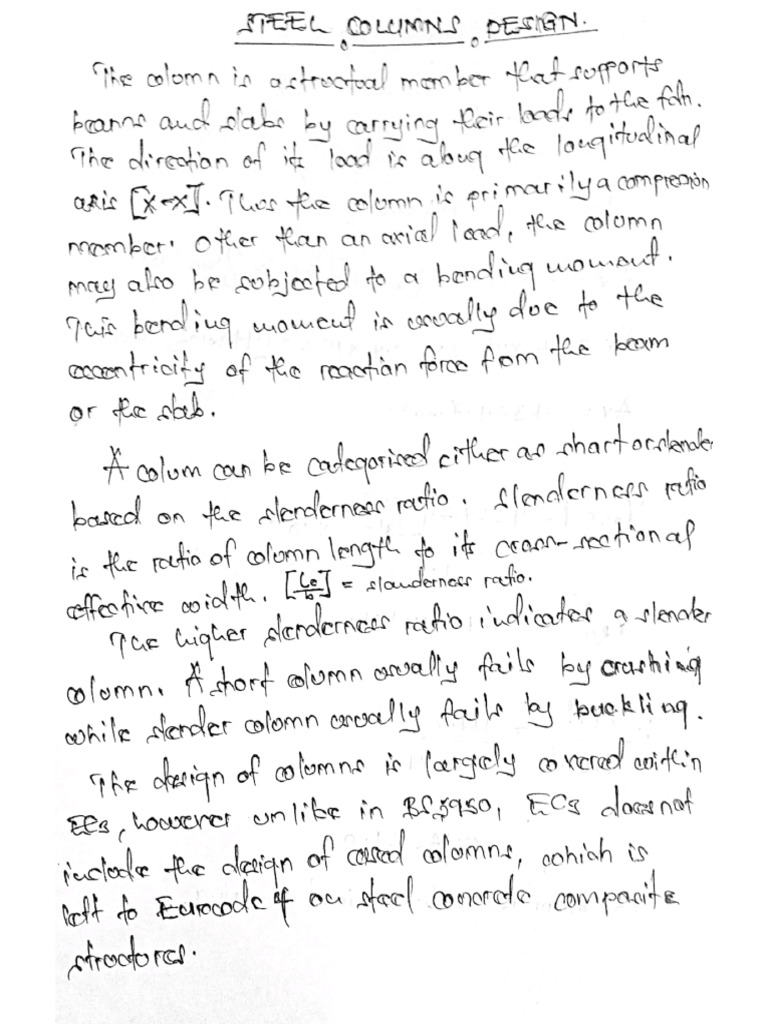 STEEL COLUMNS DESIGN.
The column is a structual member that supports
beams and slabs by carrying their loads to the fdn.
The direction of its load is along the longitudinal
axis [X-X]. Thus the column is primarily a compression
member. Other than an axial load, the column
may also be subjected to a bending moment.
This bending moment is usually due to the
eccentricity of the reaction force from the beam
or the slab.
A colum can be categorised either as short or slender
based on the slenderness ratio. Slenderness ratio
is the ratio of column length to its cross-sectional
effective width. [Le/b] = slenderness ratio.
The higher slenderness ratio indicates a slender
column. A short column usually fails by crushing
while slender column usually fails by buckling.
The design of columns is largely covered within
EC3, however unlike in BS5950, EC3 does not
include the design of cased columns, which is
left to Eurocode 4 on steel concrete composite
structures.